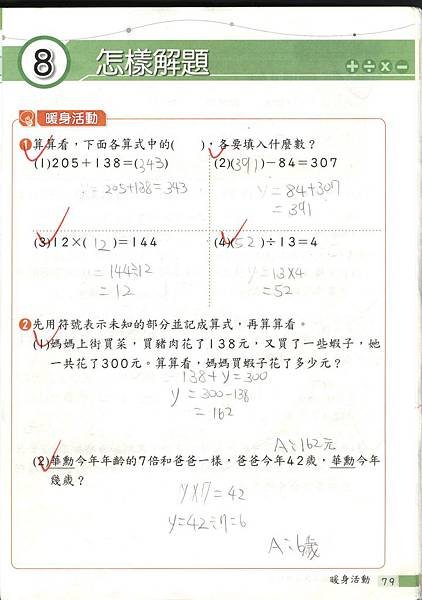 8 怎樣解題
+ ÷ × −
暖身活動
1 算算看,下面各算式中的( ),各要填入什麼數?
(1)205+138=(343) (2)(391)-84=307
=205+138=343 y=84+307
=391
(3)12×(12)=144 (4)(52)÷13=4
=144÷12 y=13×4
=12 =52
2 先用符號表示未知的部分並記成算式,再算算看。
(1)媽媽上街買菜,買豬肉花了138元,又買了一些蝦子,她
一共花了300元。算算看,媽媽買蝦子花了多少元?
138+y=300
y=300-138
=162
A:162元
(2)華勳今年年齡的7倍和爸爸一樣,爸爸今年42歲,華勳今年
幾歲?
y×7=42
y=42÷7=6
A:6歲
暖身活動 79